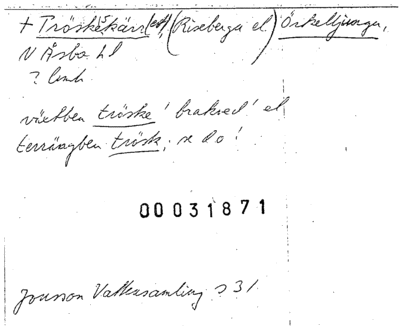 + Tröskeskärs (Riseberga el) Örkelljunga,
N Åsbo hd
? land
växtben tröske 'brakved' el
terrängben trösk; se do!
00031871
Jonsson Vattensamling s 31